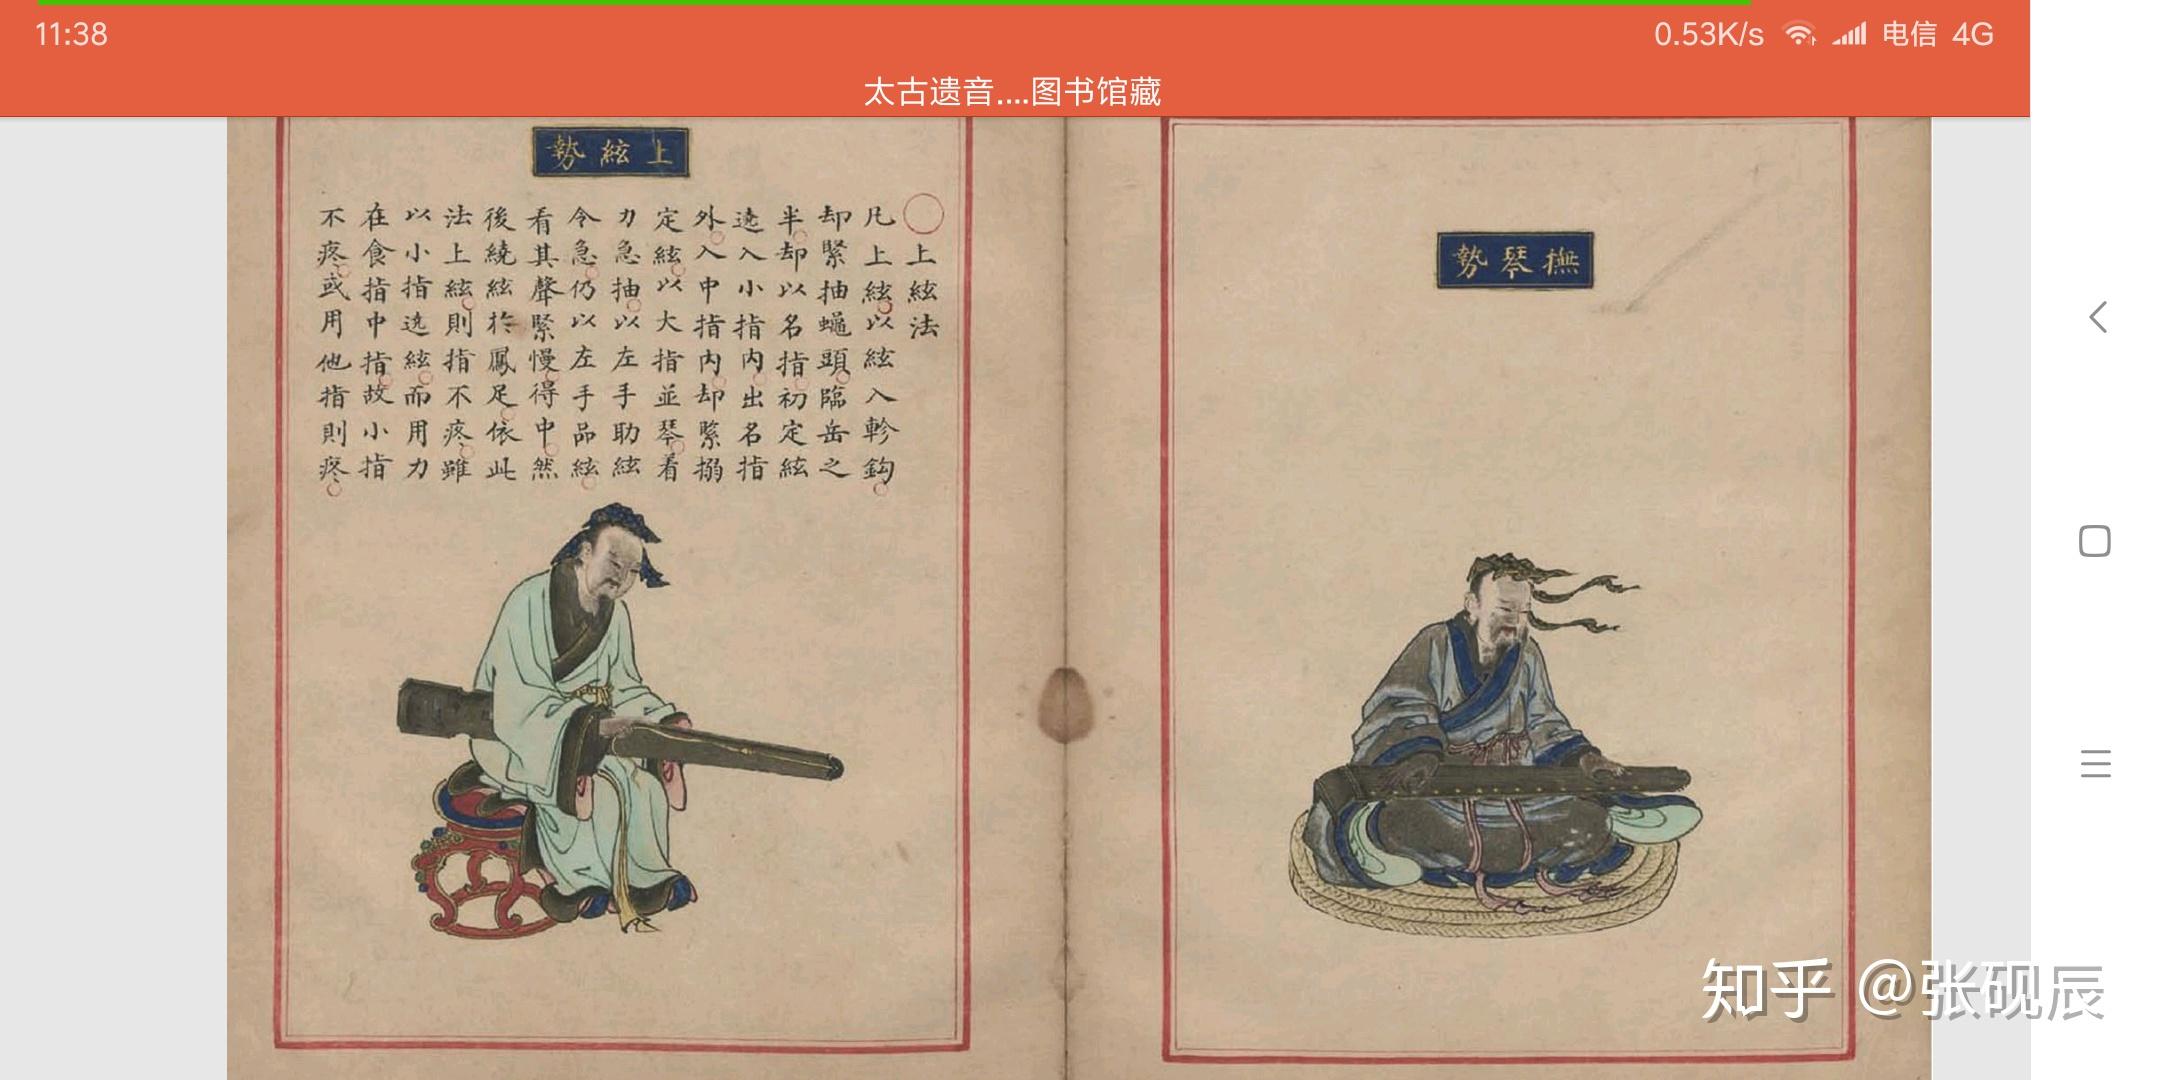 11:38
0.53K/s 电信 4G
太古遗音....图书馆藏
撫琴勢
上絃勢
上絃法
凡上絃以絃入軫鈎
却緊抽蠅頭臨岳之
半却以名指初定絃
遶入小指内出名指
外入中指内却緊搦
定絃以大指並琴着
力急抽以左手助絃
令急仍以左手品絃
看其聲緊慢得中然
後繞絃於鳳足依此
法上絃則指不疼雖
以小指絃而用力
在食指中指故小指
不疼或用他指則疼
知乎 @张砚辰